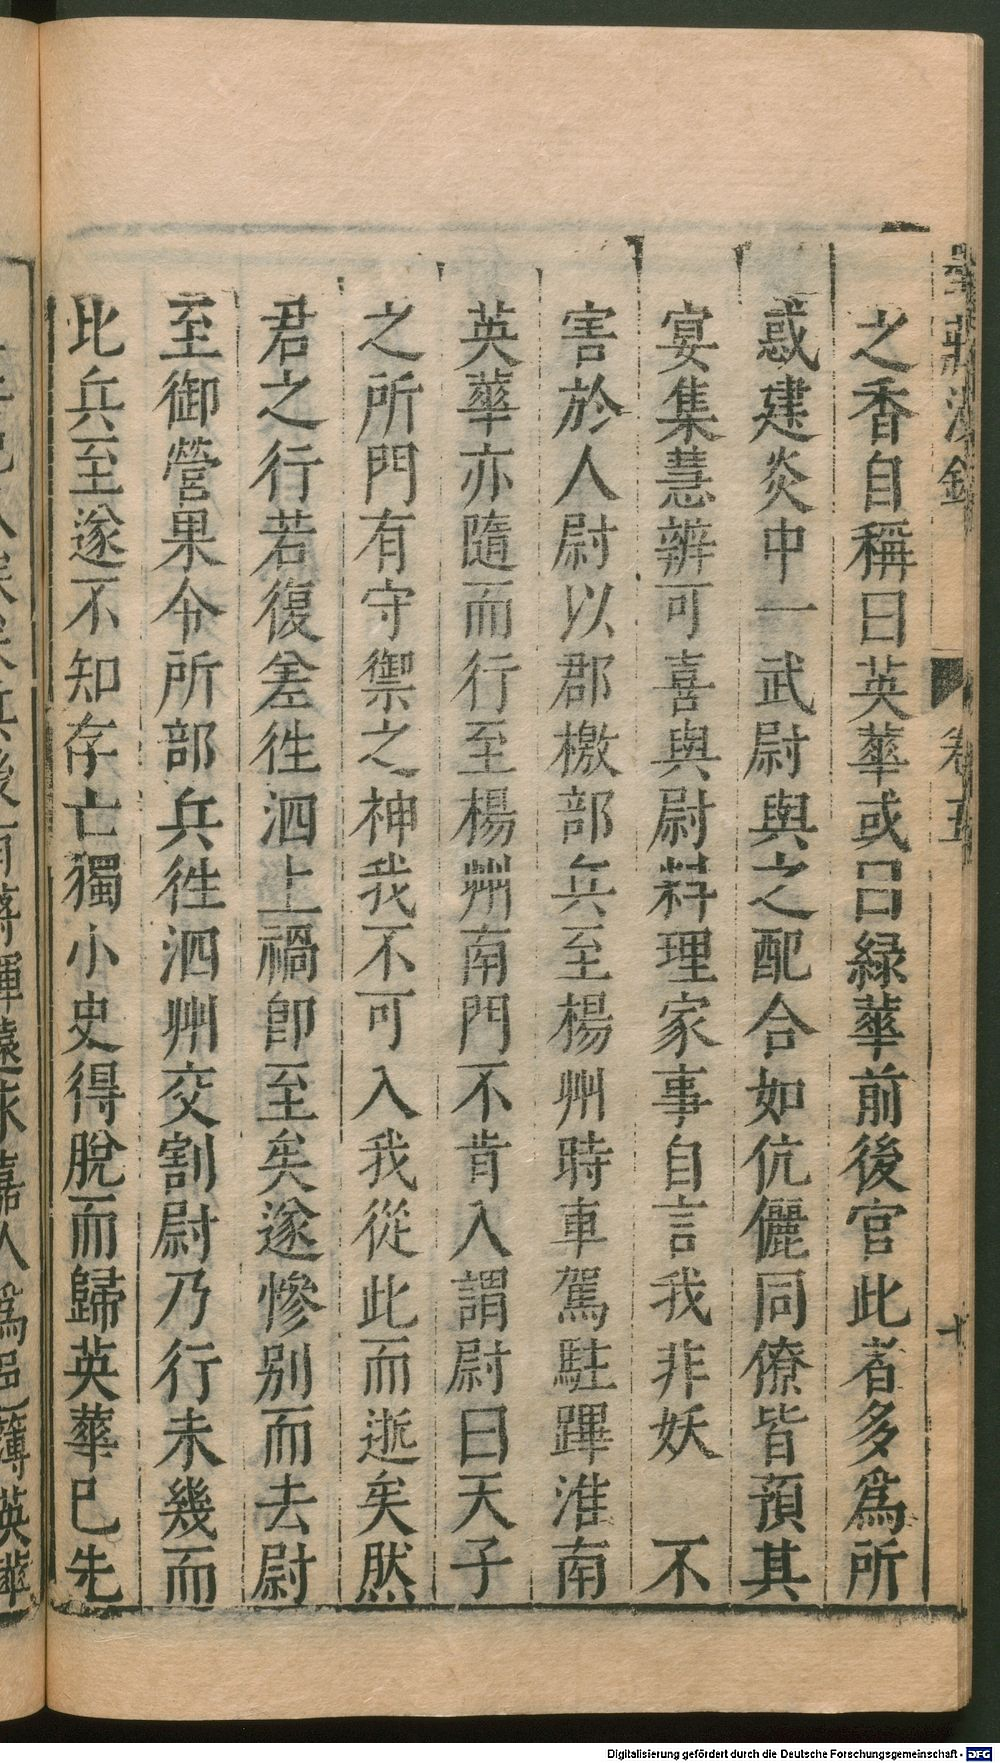 之香自稱曰英華或曰緑華前後官此者多為所
惑建炎中一武尉與之配合如伉儷同僚皆預其
宴集慧辨可喜與尉料理家事自言我非妖　不
害於人尉以郡檄部兵至楊州時車駕駐蹕淮南
英華亦隨而行至楊州南門不肯入謂尉曰天子
之所門有守禦之神我不可入我從此而逝矣然
君之行若復差徃泗上禍卽至矣遂慘别而去尉
至御營果令所部兵徃泗州交割尉乃行未幾而
北兵至遂不知存亡獨小史得脫而歸英華已先
卷五
十
Digitalisierung gefördert durch die Deutsche Forschungsgemeinschaft - DFG